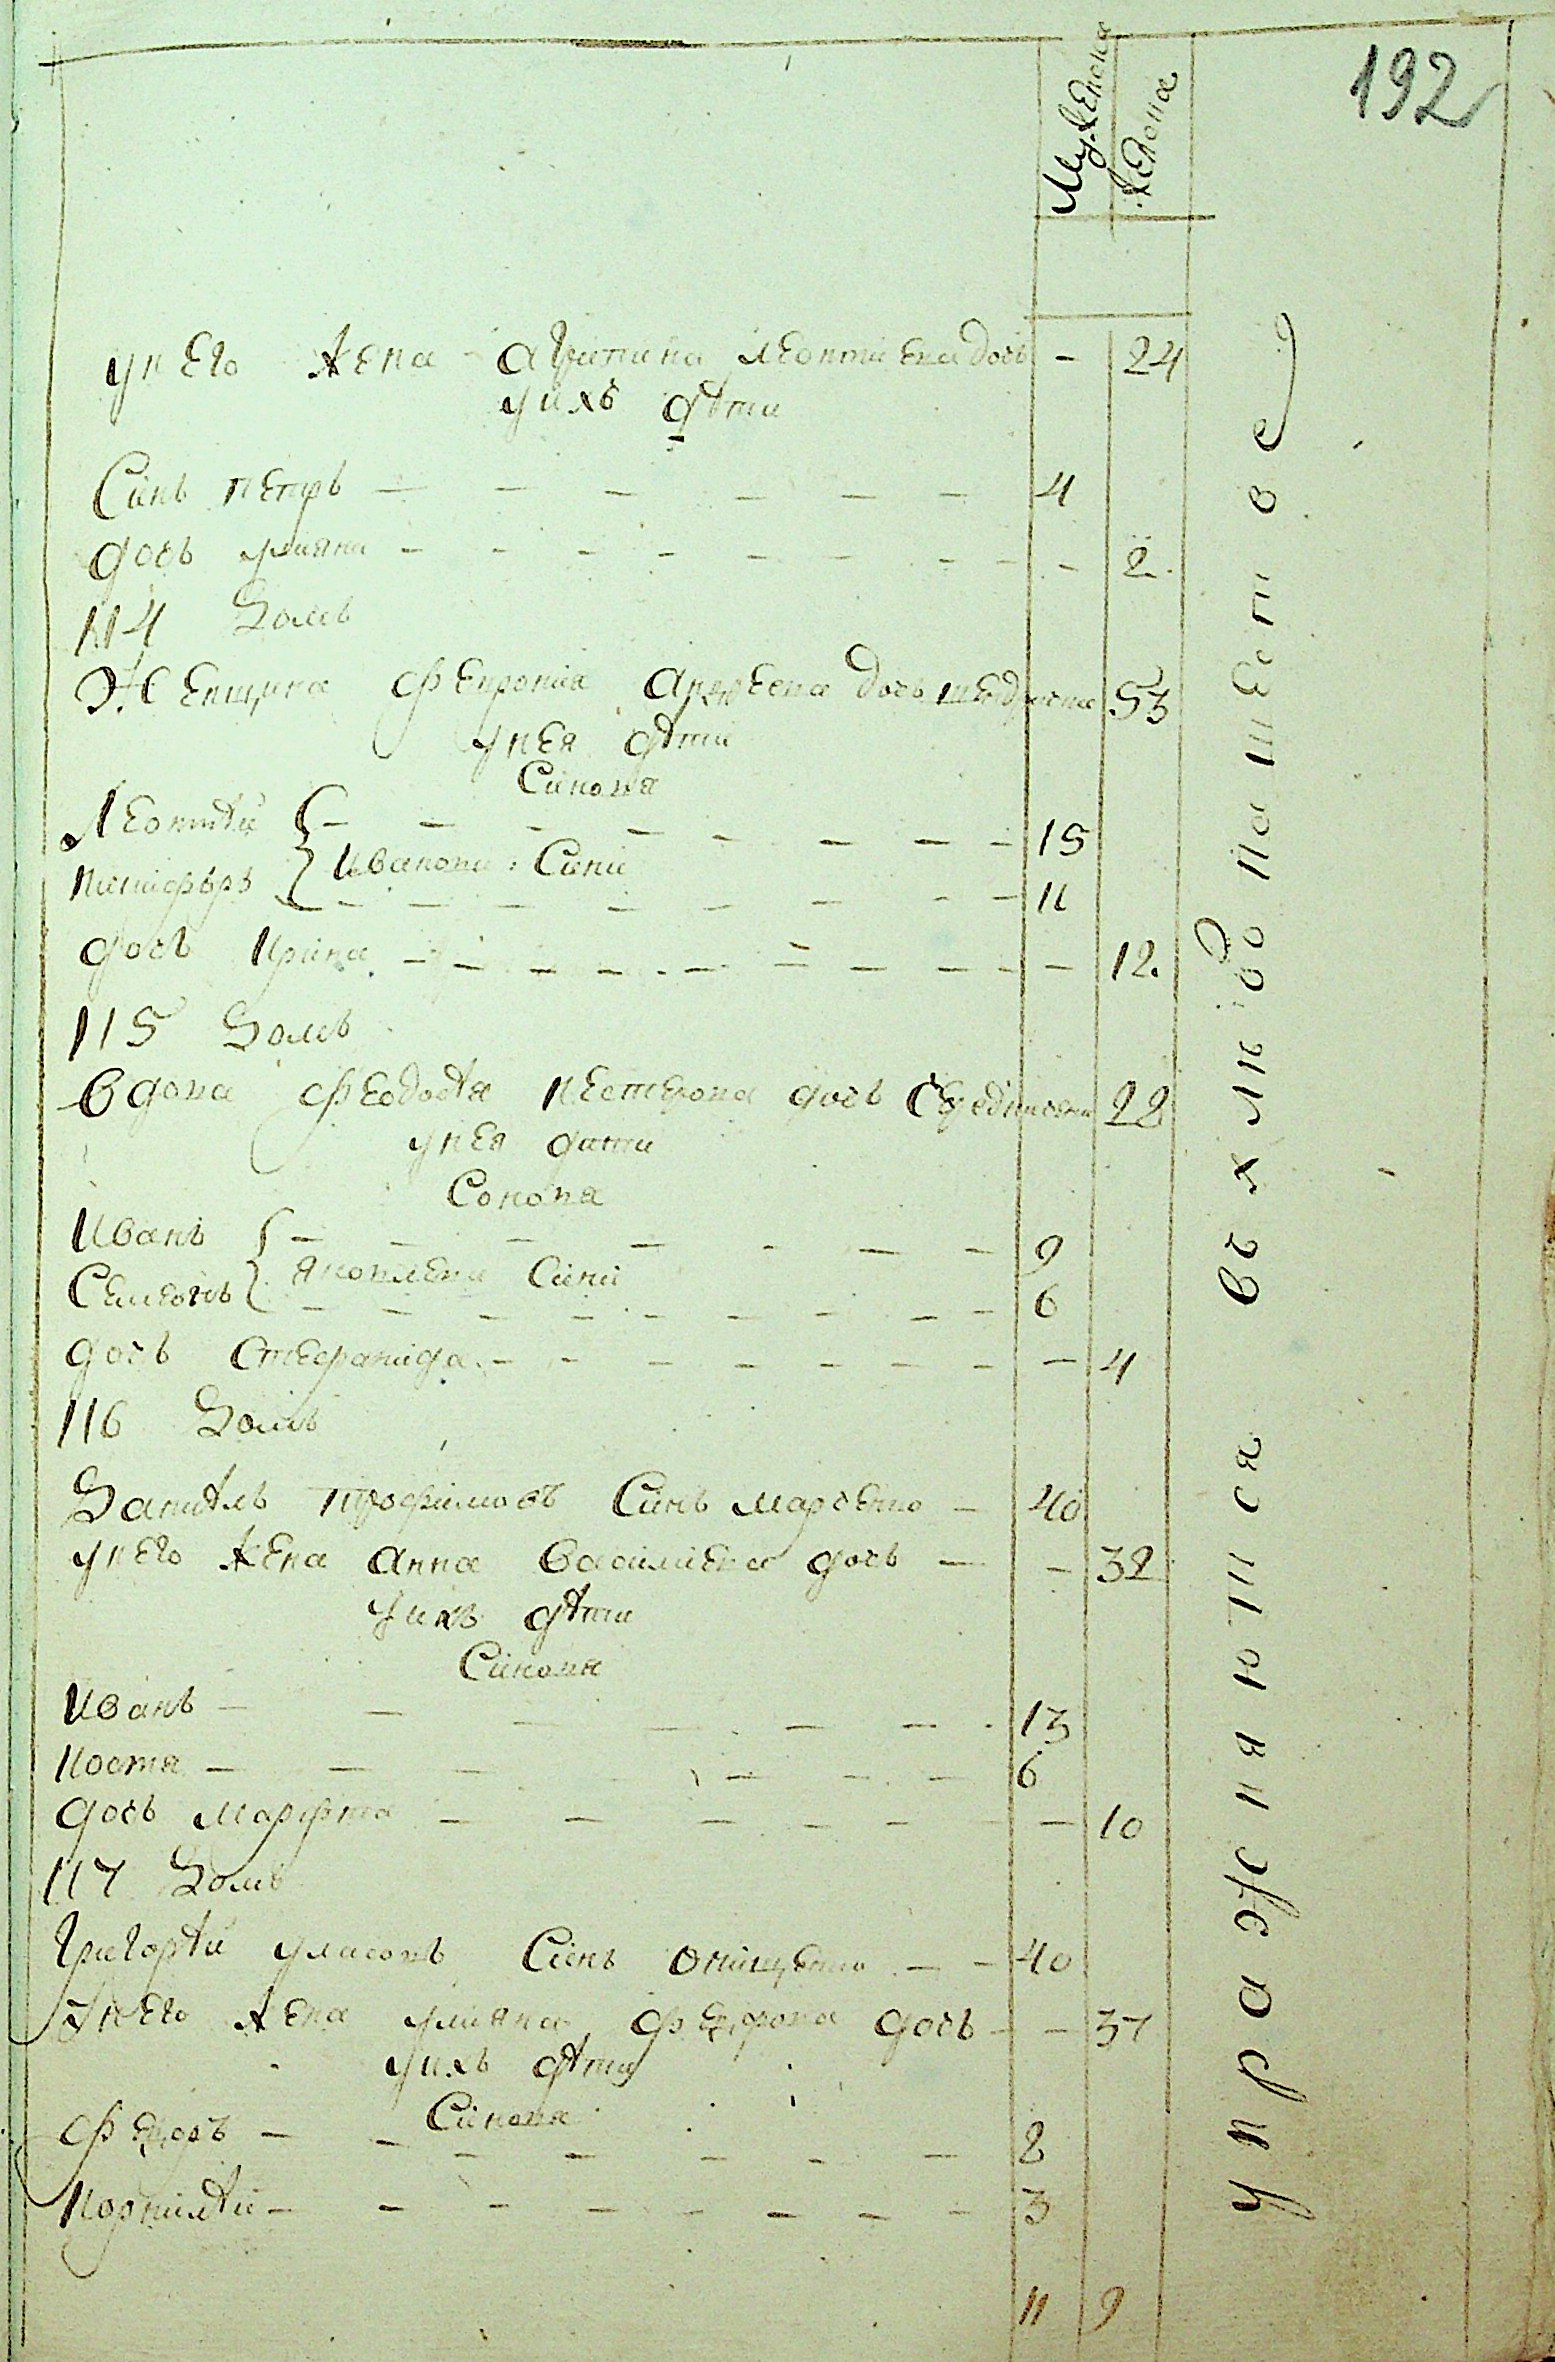 192
Мужеска
женска
у него жена Агрипина Леонтиева дочь - 24
у ихъ дѣти
Синъ Петръ 4
дочь Улияна - 2
114 Домъ
Женщина Феврония Андреева дочь 53
у нея дѣти
Синовя
Леонтий 15
Ивановы Сини
Никифоръ 11
дочь Ирина - 12.
115 Домъ
Вдова Феодосѣя Нестерова дочь 28
у нея дити
Соновя
Иванъ 9
Яковлеви Сини
Семеонъ 6
дочь Стефанида - 4
116 Домъ
Данилъ Трофимовъ Синъ Марченко - 40
у него жена Анна Василиева дочь - 32
у ихъ дѣти
Синовя
Иванъ 13
Костя 6
дочь Марфна - 10
117 Домъ
Григорѣй Уласовъ Синъ Онищенко 40
у него жена Улияна Федорова дочь - 37
у ихъ дѣти
Синовя
Федоръ 8
Корнилѣй 3
11 9
упражняются въ хлибопашество